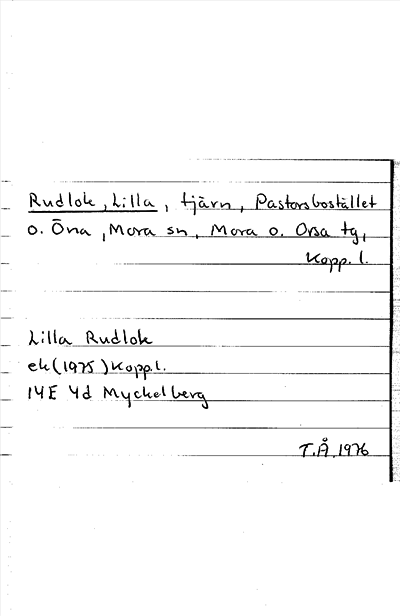 Rudlok, Lilla, tjärn, Pastorsbostället
o. Öna, Mora sn, Mora o. Orsa tg,
Kopp. l.
Lilla Rudlok
ek (1975) Kopp.l.
14E 4d Myckelberg
T.Å. 1976